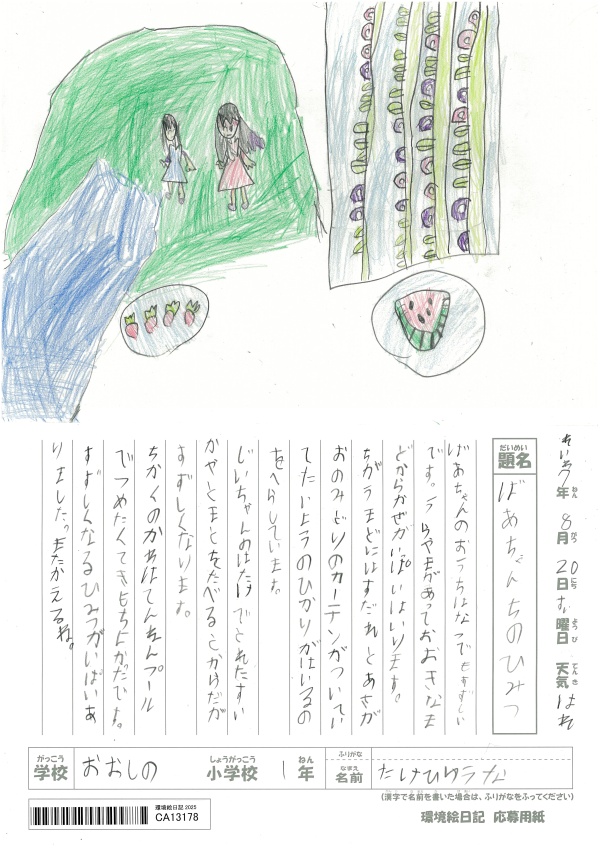 れいわ7年 8月 20日 すい曜日 天気 はれ
ねん がつ にち ようび てんき
だいめい
題名 ばあちゃんちのひみつ
ばあちゃんのおうちはなつでもすずしい
です。うらやまがあっておおきなま
どからかぜがいぱいはいります。
ちがうまどにはすだれとあさが
おのみどりのカーテンがついてい
てたいようのひかりがはいるの
をへらしています。
じいちゃんのはたけでとれたすい
かやとまとをたべるとからだが
すずしくなります。
ちかくのかわはてんねんプール
でつめたくてきもちよかたです。
すずしくなるひみつがいぱいあ
りました。またかえるね。
がっこう しょうがっこう ねん ふりがな
学校 おおしの 小学校 1年 なまえ 名前 たけひゆうな
(漢字で名前を書いた場合は、ふりがなをふってください)
環境絵日記 応募用紙
環境絵日記 2025
CA13178